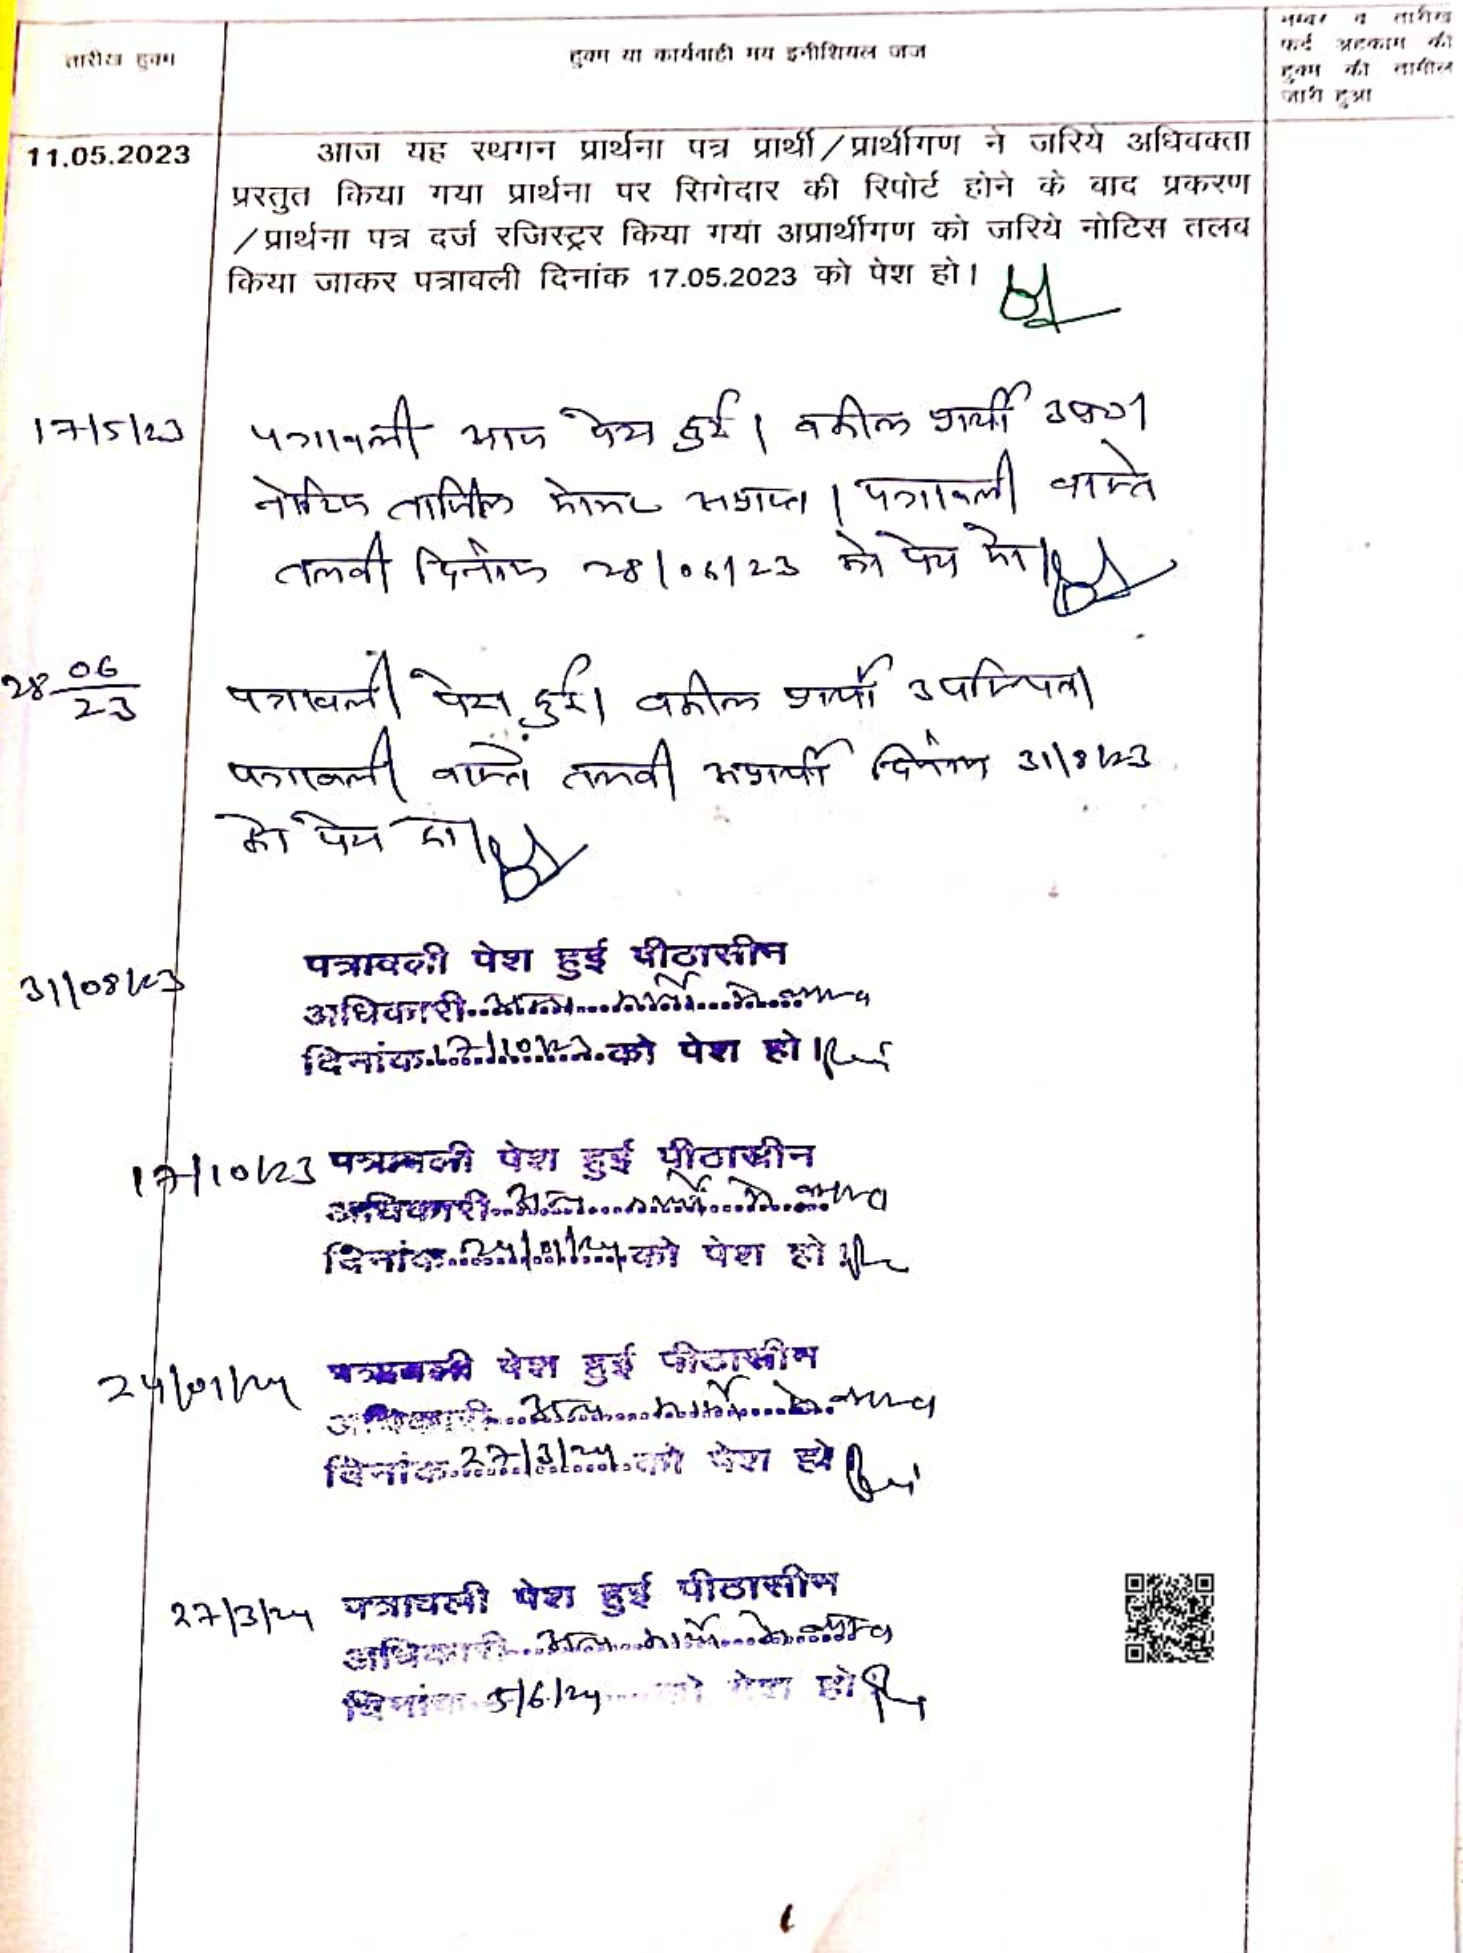 तारीख हुक्म
हुक्म या कार्यवाही मय इनीशियल जज
नम्बर व तारीख
फर्द अहकाम की
हुक्म की तामील
जारी हुआ
11.05.2023
आज यह स्थगन प्रार्थना पत्र प्रार्थी/प्रार्थीगण ने जरिये अधिवक्ता
प्रस्तुत किया गया प्रार्थना पर सिगेदार की रिपोर्ट होने के बाद प्रकरण
/प्रार्थना पत्र दर्ज रजिस्ट्रर किया गया अप्रार्थीगण को जरिये नोटिस तलब
किया जाकर पत्रावली दिनांक 17.05.2023 को पेश हो।
17/5/23
पत्रावली आज पेश हुई। वकील प्रार्थी उप०।
नोटिस तामिल होकर अप्राप्त। पत्रावली वास्ते
तलबी दिनांक 28/06/23 को पेश हो।
28 06/23
पत्रावली पेश हुई। वकील प्रार्थी उपस्थित।
पत्रावली वास्ते तलबी अप्रार्थी दिनांक 31/8/23
को पेश हो।
31/08/23
पत्रावली पेश हुई पीठासीन
अधिकारी अन्य कार्य में व्यस्त
दिनांक 17/10/23 को पेश हो।
17/10/23
पत्रावली पेश हुई पीठासीन
अधिकारी अन्य कार्य में व्यस्त
दिनांक 24/01/24 को पेश हो।
24/01/24
पत्रावली पेश हुई पीठासीन
अधिकारी अन्य कार्य में व्यस्त
दिनांक 27/3/24 को पेश हो
27/3/24
पत्रावली पेश हुई पीठासीन
अधिकारी अन्य कार्य में व्यस्त
दिनांक 5/6/24 को पेश हो